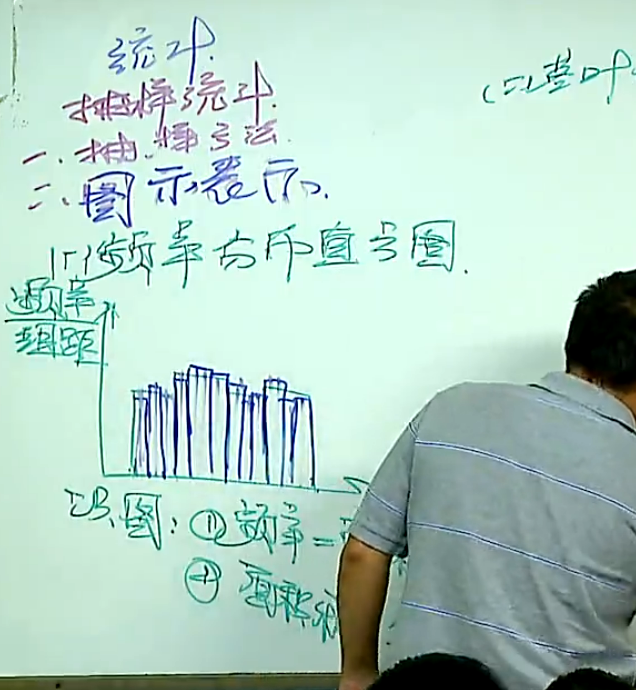 统计
抽样统计
一、抽样方法
二、图示表示
(一)频率分布直方图.
频率
组距
识图：①频率=
② 面积
(二)茎叶